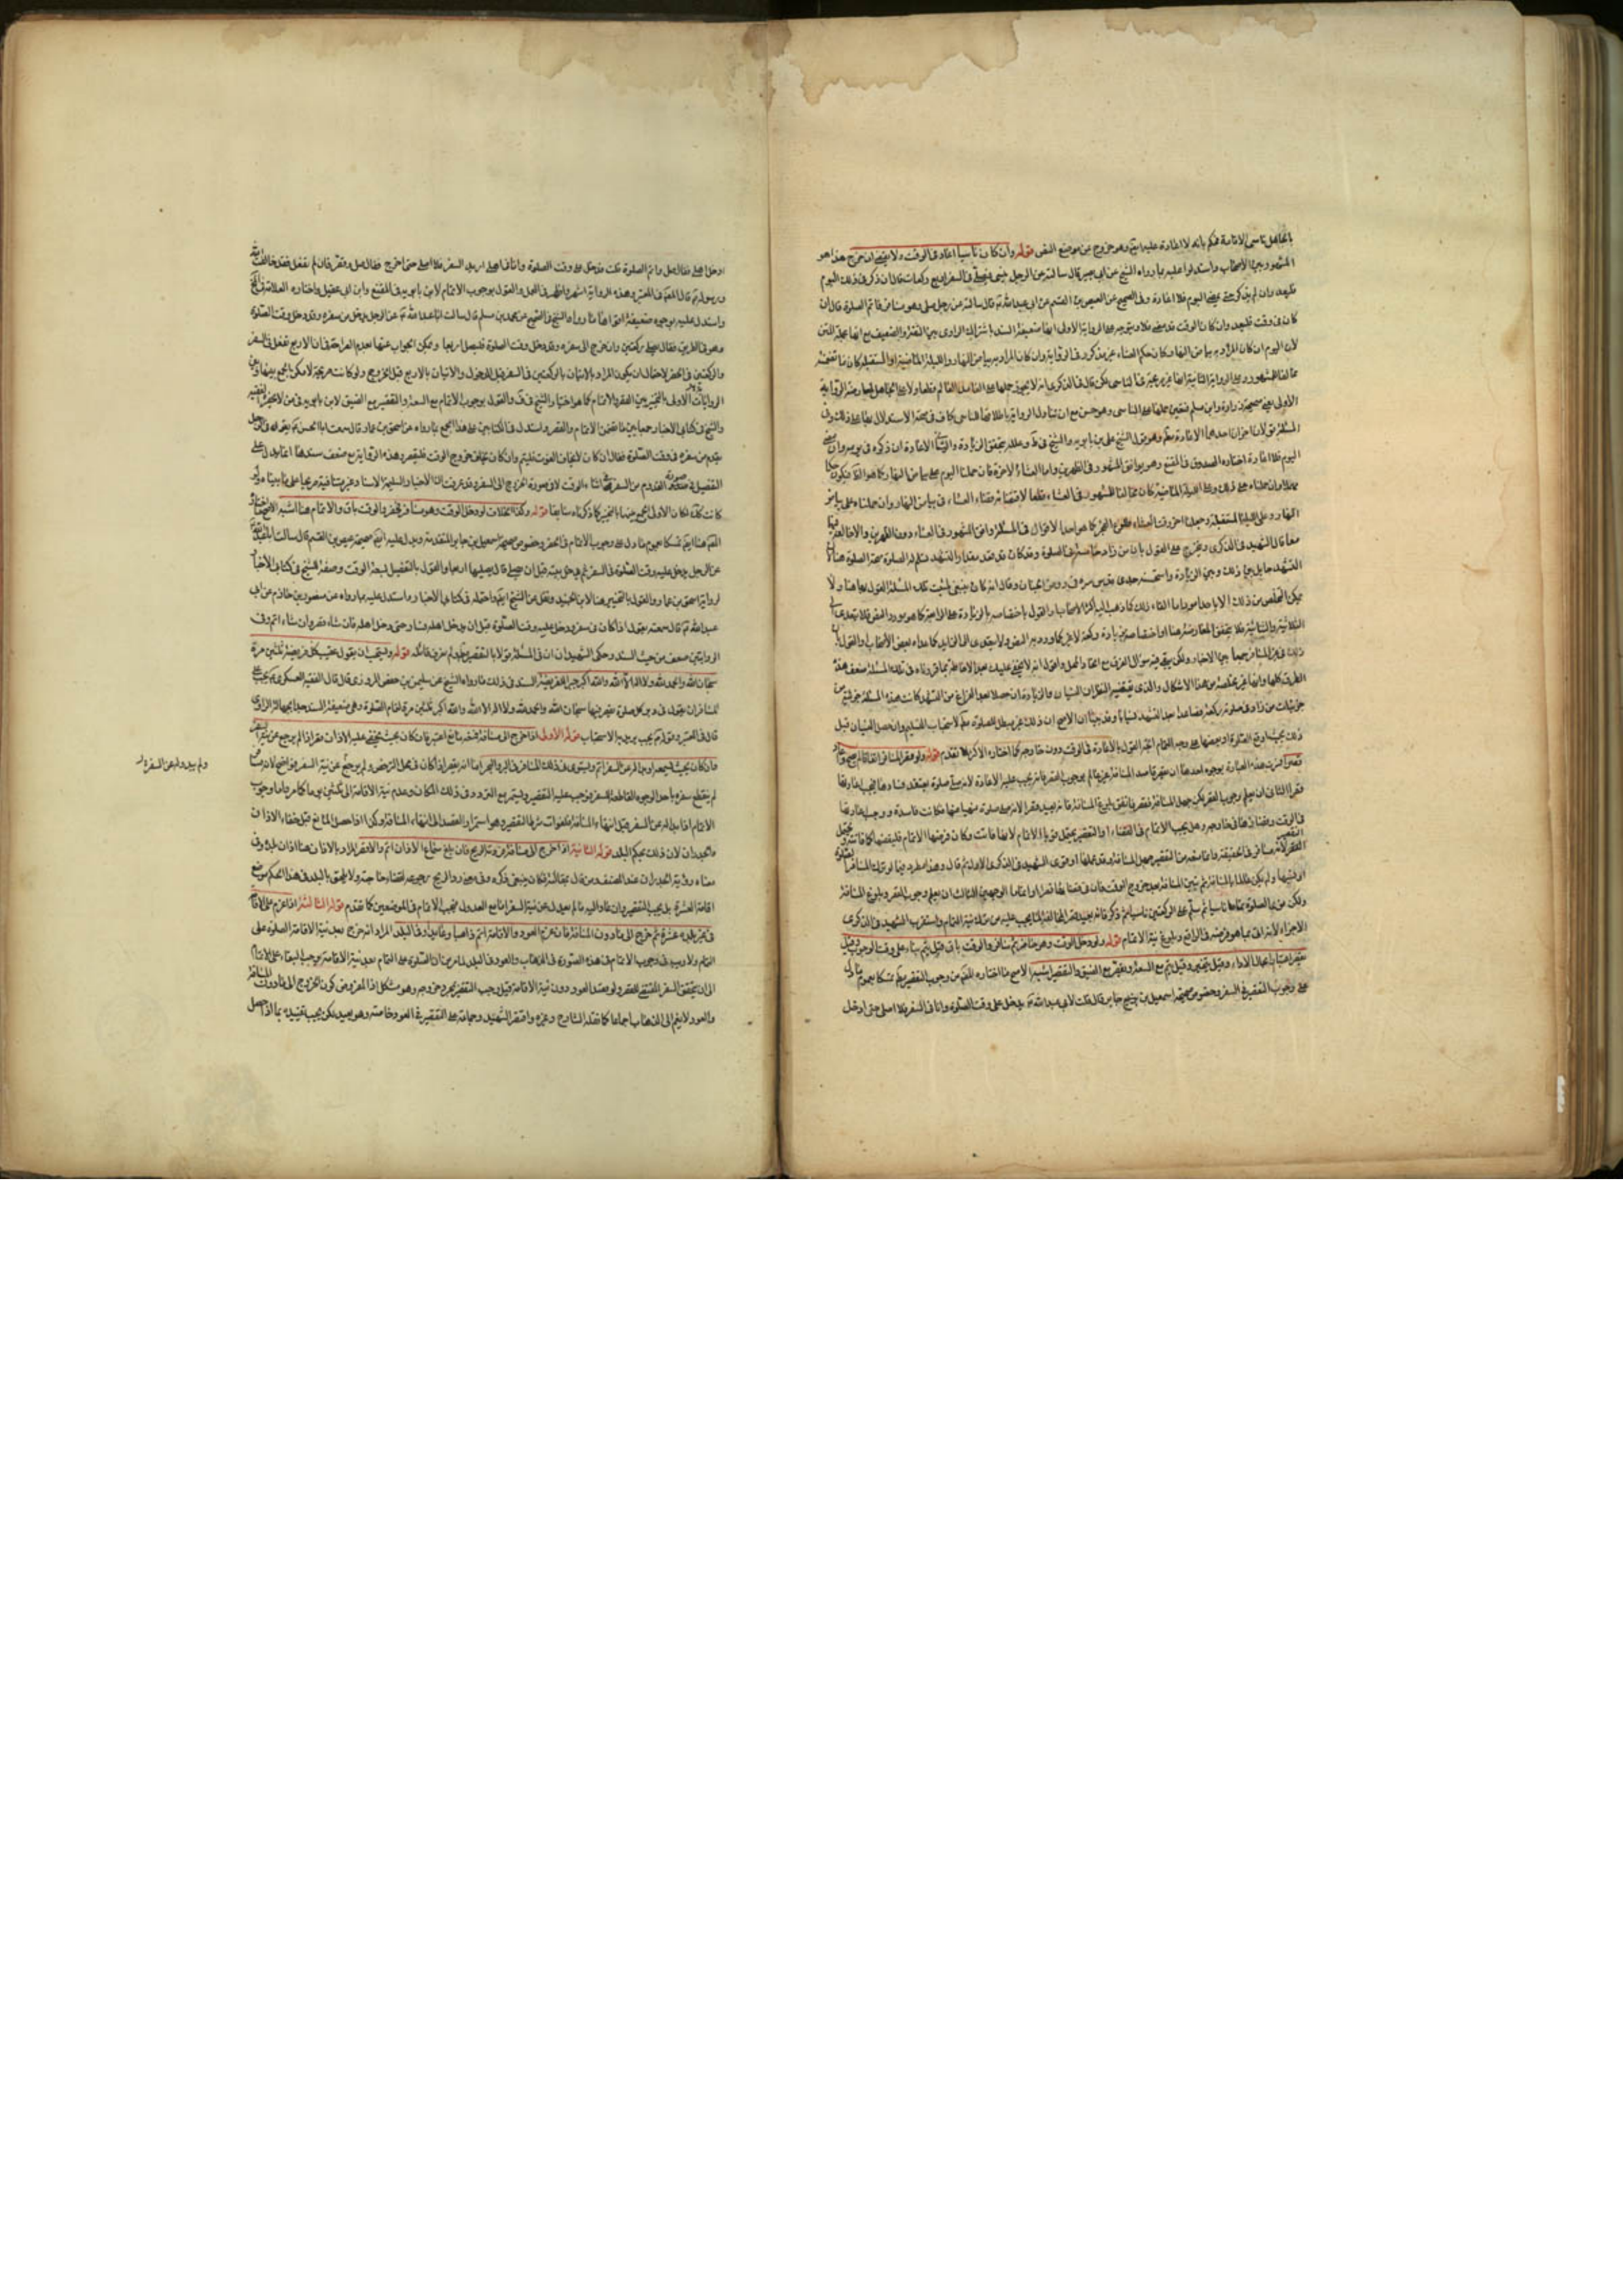 بالجاهل ناسى الاقامة فحكم بانه لا اعادة عليه ايضا وهو خروج عن موضع النص قوله وان كان ناسيا اعاد فى الوقت ولا يقضى ان خرج هذا هو
المشهور بين الاصحاب واستدلوا عليه بما رواه الشيخ عن ابى بصير قال سالته عن الرجل ينسى فيصلى فى السفر اربع ركعات قال ان ذكر فى ذلك اليوم
فليعد وان لم يذكر حتى يمضى اليوم فلا اعادة وفى الصحيح عن العيص بن القسم عن ابى عبد الله ع قال سالته عن رجل صلى وهو مسافر فاتم الصلوة قال ان
كان فى وقت فليعد وان كان الوقت قد مضى فلا ويتوجه على الرواية الاولى انها ضعيفة السند باشتراك الراوى بين الثقة والضعيف مع انها مجملة المتن
لان اليوم ان كان المراد به بياض النهار كان حكم العشاء غير مذكور فى الرواية وان كان المراد به بياض النهار والليلة الماضية او المستقبلة كان ما تضمنته
مخالفا للمشهور وعلى الرواية الثانية انها غير صريحة فى الناسى لكن قال فى الذكرى انه لا يجوز حملها على العامد العالم قطعا ولا على الجاهل لمعارضة الرواية
الاولى يعنى صحيحة زرارة وابن مسلم فتعين حملها على الناسى وهو حسن مع ان تناول الرواية باطلاقها للناسى كاف فى صحة الاستدلال بها على ذلك وفى
المسئلة قولان اخران احدهما الاعادة مطلقا وهو قول الشيخ على بن بابويه والشيخ فى ط وعلله بتحقق الزيادة والثانى الاعادة ان ذكره فى يومه وان مضى
اليوم فلا اعادة اختاره الصدوق فى المقنع وهو يوافق المشهور فى الظهرين واما العشاء الاخرة فان حملنا اليوم على بياض النهار كما هو الظاهر فيكون حكمها
مهملا وان حملناه على ذلك وعلى الليلة الماضية كان مخالفا للمشهور فى العشاء قطعا لاقتضائه قضاء العشاء فى بياض النهار وان حملناه على بياض
النهار وعلى الليلة المستقبلة وجعلنا اخر وقت العشاء طلوع الفجر كما هو احد الاقوال فى المسئلة وافق المشهور فى العشاء دون الظهرين والا خالف فيهما
معا قال الشهيد فى الذكرى ويتخرج على القول بان من زاد خامسة فى الصلوة وقد كان قد قعد مقدار التشهد تسلم له الصلوة صحة الصلوة هنا لان
التشهد حايل بين ذلك وبين الزيادة واستحسنه جدى قدس سره فى روض الجنان وقال انه كان ينبغى لمثبت تلك المسئلة القول بها هنا ولا
يمكن التخلص من ذلك الا باحد امور اما الغاء ذلك كما ذهب اليه اكثر الاصحاب والقول باختصاصه بالزيادة على الرابعة كما هو مورد النص فلا يتعدى الى
الثلاثية والثنائية فلا يتحقق المعارضة هنا او اختصاصه بزيادة ركعة لا غير كما ورد به النص ولا يتعدى الى الزايد كما عداه بعض الاصحاب والقول بان
ذلك فى غير المسافر جمعا بين الاخبار ولكن يبقى فيه سؤال الفرق مع اتحاد المحل واقول انه لا يخفى عليك بعد الاحاطة بما قررناه فى تلك المسئلة ضعف هذه
الطرق كلها وانها غير مخلصة من هذا الاشكال والذى يقتضيه النظر ان النسيان والزيادة ان حصلا بعد الفراغ من التشهد كانت هذه المسئلة جزئية من
جزئيات من زاد فى صلوته ركعة فصاعدا بعد التشهد نسيانا وقد بينا ان الاصح ان ذلك غير مبطل للصلوة مطلقا لاستحباب التسليم وان حصل النسيان قبل
ذلك بحيث اوقع الصلوة او بعضها على وجه التمام اتجه القول بالاعادة فى الوقت دون خارجه كما اختاره الاكثر لما تقدم قوله ولو قصر المسافر اتفاقا لم تصح واعاد
قصرا فسرت هذه العبارة بوجوه احدها ان يقصر قاصد المسافة غير عالم بوجوب القصر فانه يجب عليه الاعادة لانه صلى صلوة يعتقد فسادها فيجب اعادتها
قصرا الثانى ان يعلم وجوب القصر لكن جهل المسافة فقصر فاتفق بلوغ المسافة فانه يعيد قصرا لانه صلى صلوة منهيا عنها فكانت فاسدة ووجب اعادتها
فى الوقت وقضاؤها فى خارجه وهل يجب الاتمام فى القضاء او التقصير يحتمل قويا الاتمام لانها فاتت وكان فرضها الاتمام فليقضها كما فاتته ويحتمل
القصر لانه مسافر فى الحقيقة وانما منعه من التقصير جهل المسافة وقد علمها
او ظنها ولم يكن عالما بالمسافة ثم تبين المسافة بعد خروج الوقت فان فى قضائها قصرا او تماما الوجهين الثالث ان يعلم وجوب القصر وبلوغ المسافة
ولكن نوى الصلوة تماما ناسيا ثم سلم على الركعتين ناسيا ثم ذكر فانه يعيد قصرا لمخالفة ما يجب عليه من ترك نية التمام واستقرب الشهيد فى الذكرى
الاجزاء لانه اتى بما هو فرضه فى الواقع ويلغو نية الاتمام قوله ولو دخل الوقت وهو حاضر ثم سافر والوقت باق قيل يتم بناء على وقت الوجوب وقيل
يقصر اعتبارا بحال الاداء وقيل يتخير وقيل يتم مع السعة ويقصر مع الضيق والتقصير اشبه الاصح ما اختاره المصنف من وجوب التقصير مطلقا تمسكا بعموم ما دل
على وجوب التقصير فى السفر وخصوص صحيحة اسمعيل بن جابر قال قلت لابى عبد الله ع يدخل على وقت الصلوة وانا فى السفر فلا اصلى حتى ادخل
اهلى فقال صل واتم الصلوة قلت فدخل على وقت الصلوة وانا فى اهلى اريد السفر فلا اصلى حتى اخرج فقال صل وقصر فان لم تفعل فقد خالفت الله
ورسوله قال المصنف فى المعتبر وهذه الرواية اشهر واظهر فى العمل والقول بوجوب الاتمام لابن بابويه فى المقنع وابن ابى عقيل واختاره العلامة فى
واستدل عليه بوجوه ضعيفة اقواها ما رواه الشيخ فى الصحيح عن محمد بن مسلم قال سالت ابا عبد الله ع عن الرجل يدخل من سفره وقد دخل وقت الصلوة
وهو فى الطريق فقال يصلى ركعتين وان خرج الى سفره وقد دخل وقت الصلوة فليصل اربعا ويمكن الجواب عنها بعدم الصراحة فى ان الاربع تفعل فى السفر
والركعتين فى الحضر لاحتمال ان يكون المراد بالاتيان بالركعتين فى السفر قبل الدخول والاتيان بالاربع قبل الخروج ولو كانت صريحة لامكن الجمع بينها وبين
الروايات الاولى بالتخيير بين القصر والاتمام كما هو اختيار الشيخ فى ف والقول بوجوب الاتمام مع السعة والتقصير مع الضيق لابن بابويه فى من لا يحضره الفقيه
والشيخ فى كتابى الاخبار جمعا بين ما تضمن الاتمام والقصر واستدل فى الكتابين على هذا الجمع بما رواه عن اسحق بن عمار قال سمعت ابا الحسن ع يقول فى الرجل
يقدم من سفره فى وقت الصلوة فقال ان كان لا يخاف الفوت فليتم وان كان يخاف خروج الوقت فليقصر وهذه الرواية مع ضعف سندها انما يدل على
التفصيل فى صورة القدوم من السفر فى اثناء الوقت لا فى صورة الخروج الى السفر وقد عرفت ان الاخبار السليمة الاسناد غير متنافية صريحا على ما بيناه ولو
كانت كذلك لكان الاولى الجمع بينها بالتخيير كما ذكرناه سابقا قوله وكذا الخلاف لو دخل الوقت وهو مسافر فحضر والوقت باق والاتمام هنا اشبه الاصح ما اختاره
المصنف هنا ايضا تمسكا بعموم ما دل على وجوب الاتمام فى الحضر وخصوص صحيحة اسمعيل بن جابر المتقدمة ويدل عليه ايضا صحيحة عيص بن القسم قال سالت ابا عبد الله ع
عن الرجل يدخل عليه وقت الصلوة فى السفر ثم يدخل بيته قبل ان يصلى قال يصليها اربعا والقول بالتفصيل لسعة الوقت وضيقه للشيخ فى كتابى الاخبار
لرواية اسحق بن عمار والقول بالتخيير هنا لابن الجنيد ونقل عن الشيخ ايضا واحتمله فى كتابى الاخبار واستدل عليه بما رواه عن منصور بن حازم عن ابى
عبد الله ع قال سمعته يقول اذا كان فى سفر ودخل عليه وقت الصلوة قبل ان يدخل اهله فسار حتى دخل اهله فان شاء قصر وان شاء اتم وفى
الروايتين ضعف من حيث السند وحكى الشهيدان ان فى المسئلة قولا بالتقصير مطلقا ولم نعرف قائله قوله ويستحب ان يقول عقيب كل فريضة ثلثين مرة
سبحان الله والحمد لله ولا اله الا الله والله اكبر جبرا للفريضة المستند فى ذلك ما رواه الشيخ عن سليمن بن حفص المروزى قال قال الفقيه العسكرى ع يجب على
المسافر ان يقول فى دبر كل صلوة يقصر فيها سبحان الله والحمد لله ولا اله الا الله والله اكبر ثلثين مرة لتمام الصلوة وهى ضعيفة السند جدا بجهالة الراوى
قال فى المعتبر وقوله يجب يريد به الاستحباب قوله الاولى اذا خرج الى مسافة فمنعه مانع اعتبر فان كان بحيث يخفى عليه الاذان قصر اذا لم يرجع عن نية السفر
وان كان بحيث يسمعه او بدا له عن السفر اتم ويستوى فى ذلك المسافر فى البر والبحر اما انه يقصر اذا كان فى محل الترخص ولم يرجع عن نية السفر فواضح لانه مسافر
لم ينقطع سفره باحد الوجوه القاطعة للسفر فوجب عليه التقصير ويستمر مع التردد فى ذلك المكان وعدم نية الاقامة الى ثلثين يوما كما مر واما وجوب
الاتمام اذا بدا له عن السفر قبل انتهاء المسافة فلفوات شرط التقصير وهو استمرار القصد الى انتهاء المسافة وكذا اذا حصل المانع قبل خفاء الاذان
والجدران لان ذلك بحكم البلد قوله الثانية اذا خرج الى مسافة فردته الريح فان بلغ سماع الاذان اتم والا قصر المراد بالاذان هنا اذان بلده وفى
معناه رؤية الجدران عند المصنف ومن قال بمقالته فكان ينبغى ذكره وفى معنى رد الريح رجوعه لقضاء حاجته ولا يلحق بالبلد فى هذا الحكم موضع
اقامة العشرة بل يجب التقصير وان عاد اليه ما لم يعدل عن نية السفر اما مع العدول فيجب الاتمام فى الموضعين كما تقدم قوله الثالثة اذا عزم على الاقامة
فى غير بلده عشرة ثم خرج الى ما دون المسافة فان عزم العود والاقامة اتم ذاهبا وعائدا وفى البلد المراد انه خرج بعد نية الاقامة والصلوة على
التمام ولا ريب فى وجوب الاتمام فى هذه الصورة فى الذهاب والعود وفى البلد لما مر من ان الصلوة على التمام بعد نية الاقامة يوجب البقاء على الاتمام
الى ان يتحقق السفر المقتضى للقصر ولو قصد العود دون نية الاقامة قيل وجب التقصير بمجرد خروجه وهو مشكل اذ المفروض كون الخروج الى ما دون المسافة
والعود لا يضم الى الذهاب اجماعا كما نقله الشارح وغيره وافتى الشهيد وجماعة على التقصير فى العود خاصة وهو جيد لكن يجب تقييده بما اذا حصل
ولم يبد له عن السفر